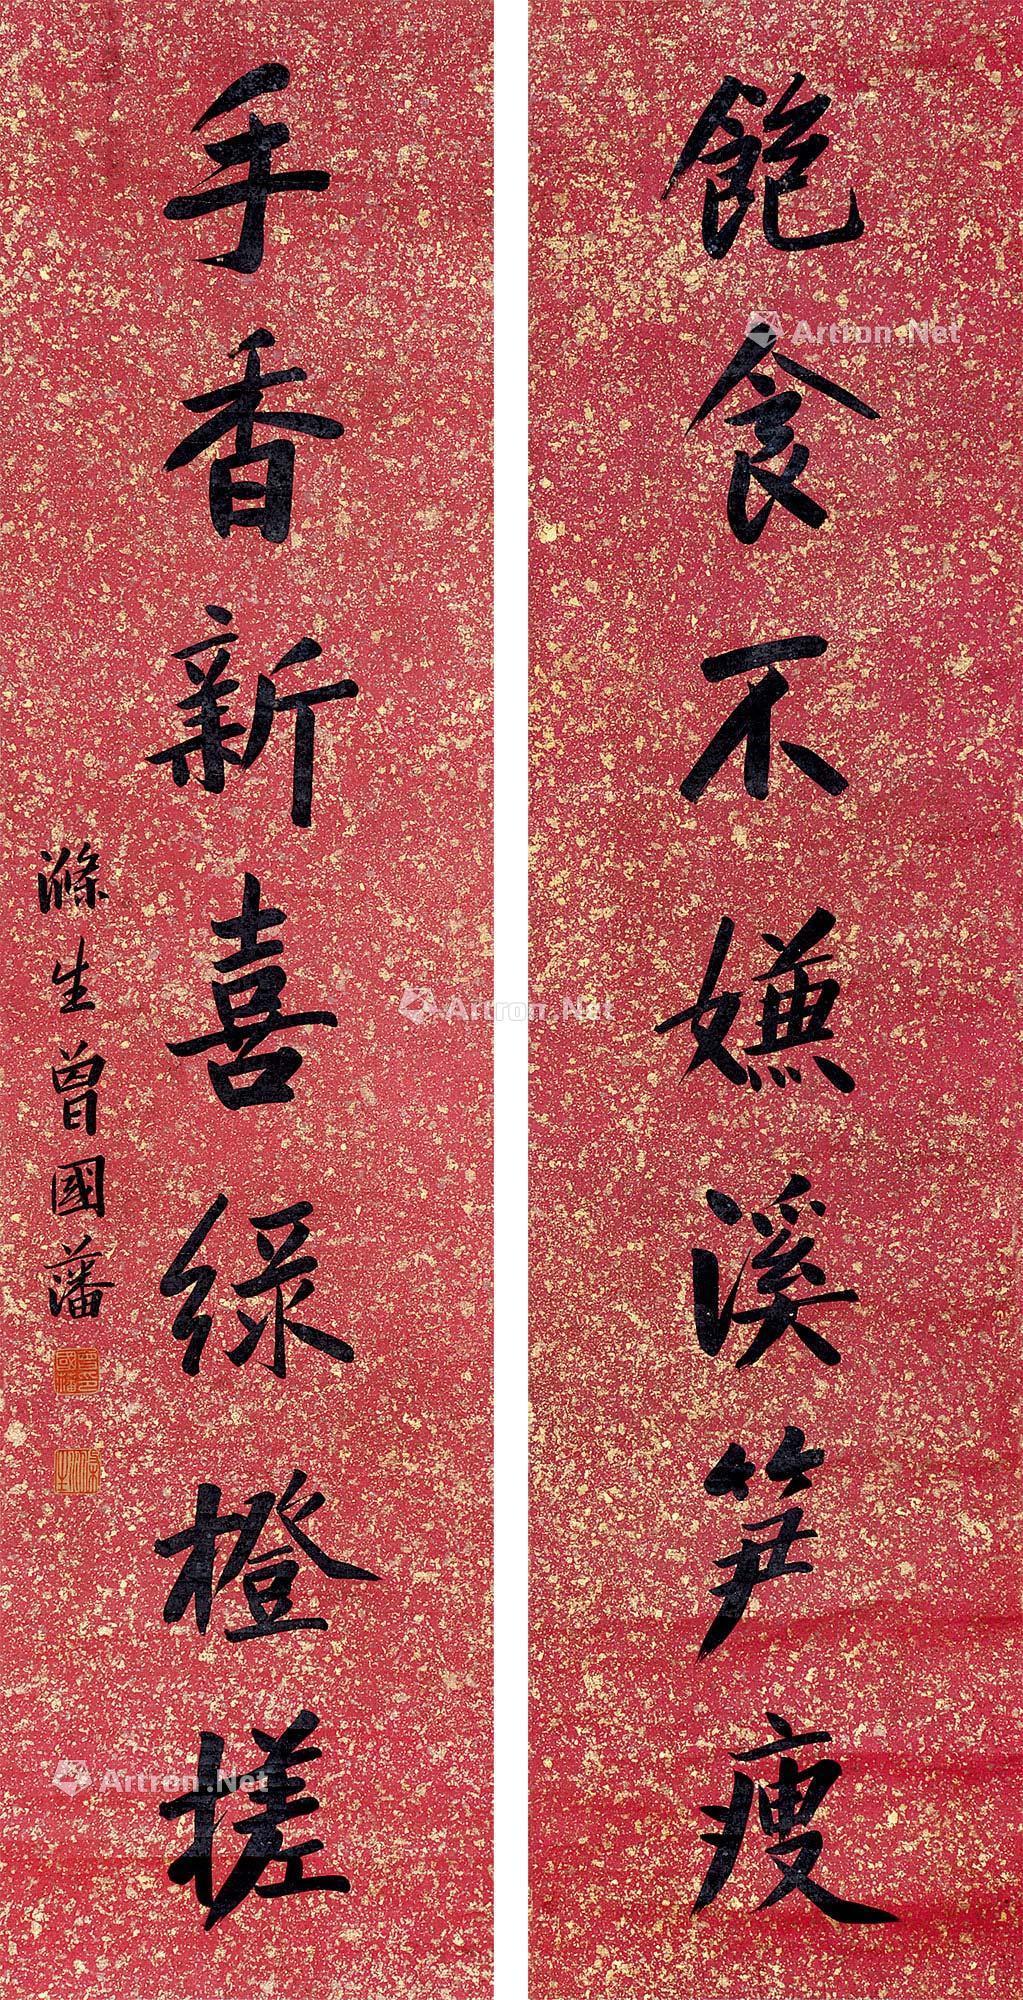 飽食不嫌溪笋瘦
手香新喜綠橙搓
滌生曾國藩
Artron.Net
Artron.Net
Artron.Net